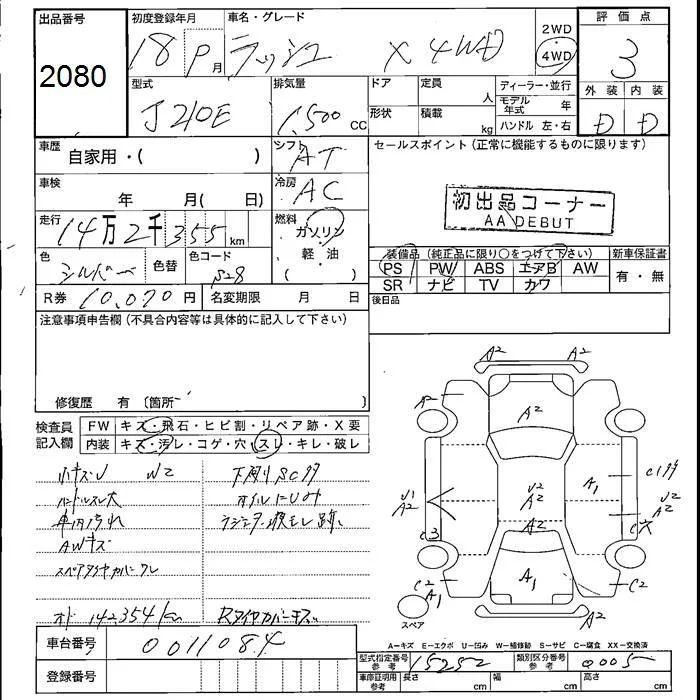 出品番号
2080
初度登録年月
18 P 月
車名・グレード
ラッシュ X 4WD
2WD
4WD
評価点
3
外装 内装
D D
型式
J210E
排気量
1,500 CC
ドア
形状
定員
人
積載
kg
ディーラー・並行
モデル年式 年
ハンドル 左・右
車歴
自家用・( )
シフト
AT
セールスポイント(正常に機能するものに限ります)
車検
年 月( 日)
冷房
AC
初出品コーナー
AA DEBUT
走行
14万2千355km
燃料
ガソリン
軽油
色
シルバー
色替
色コード
S28
装備品(純正品に限り○をつけて下さい)
新車保証書
PS PW ABS エアB AW
有・無
SR ナビ TV カワ
R券 10,070円
名変期限 月 日
後日品
注意事項申告欄(不具合内容等は具体的に記入して下さい)
修復歴 有〔箇所 〕
検査員記入欄
FW キズ・飛石・ヒビ割・リペア跡・X要
内装 キズ・汚レ・コゲ・穴・スレ・キレ・破レ
小キズU W2
ハンドルスレ大
車内汚れ
AWキズ
スペアタイヤカバーワレ
オド 142,354km
下廻りSC多
オイルにじみ
Rタイヤカバーキズ
A2 A2
A2
A2
A1
C1多
U1
A2
U2
A2
U2
A2
C3
A2
C穴
C2
A1
A1
C2
A2
スペア
A-キズ E-エクボ U-凹み W-補修跡 S-サビ C-腐食 XX-交換済
車台番号
0011084
登録番号
型式指定番号参考
15252
類別区分番号参考
0005
車庫証明用参考
長さ cm
幅 cm
高さ cm